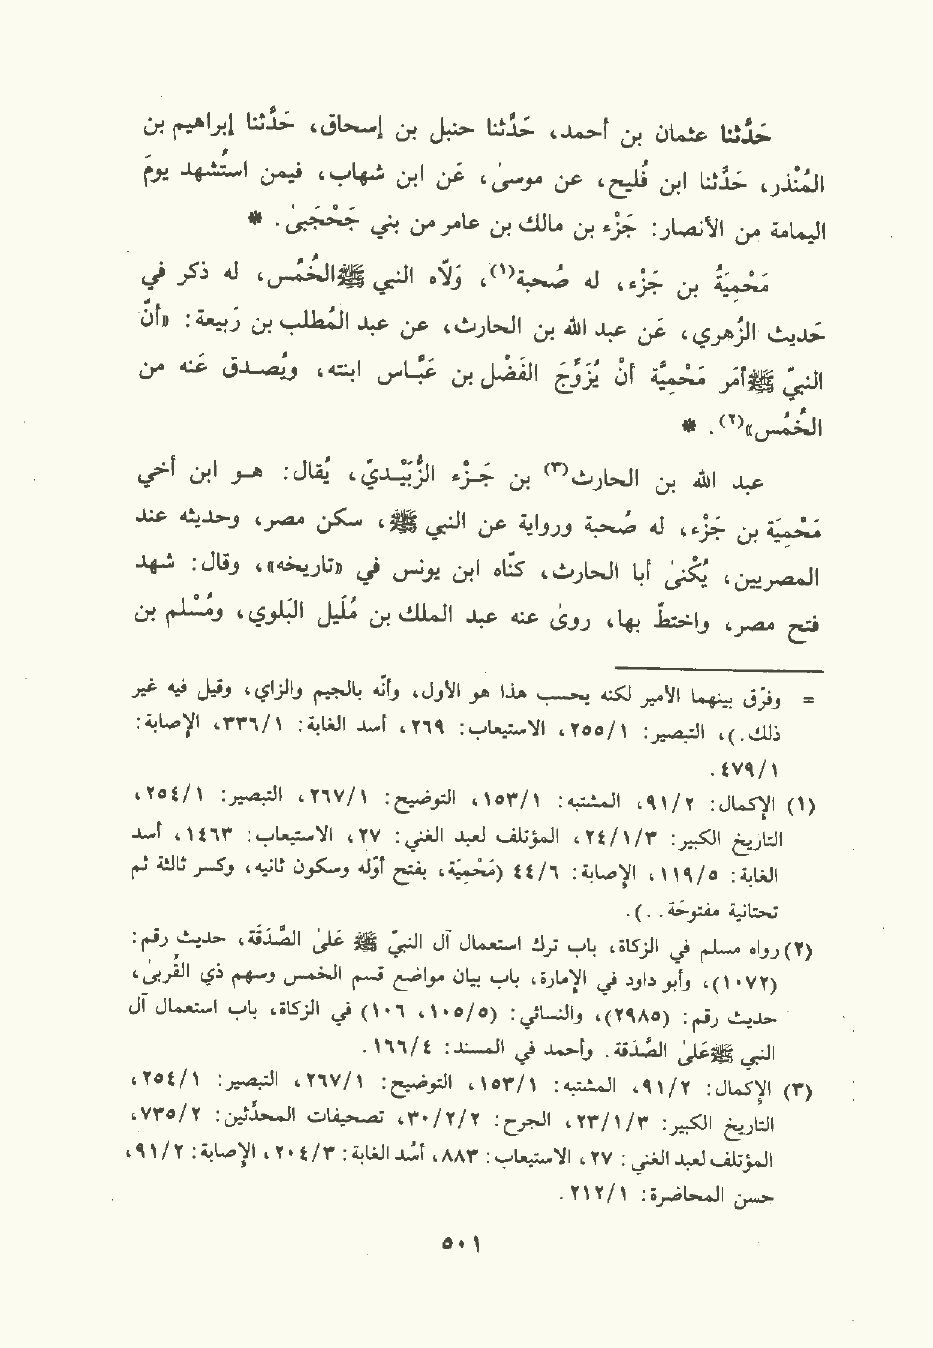 حَدَّثنا عثمان بن أحمد، حَدَّثنا حنبل بن إسحاق، حَدَّثنا إبراهيم بن
المُنْذر، حَدَّثنا ابن فُليح، عن موسىٰ، عَن ابن شهاب، فيمن استُشهد يومَ
اليمامة من الأنصار: جَزْء بن مالك بن عامر من بني جَحْجَبىٰ. *
مَحْمِيَةُ بن جَزء، له صُحبة(١)، وَلاّه النبي ﷺ الخُمُس، له ذكر في
حَديث الزُهري، عَن عبد الله بن الحارث، عن عبد المُطلب بن رَبيعة: «أنّ
النبيّ ﷺ أمَر مَحْمِيَّة أنْ يُزَوِّجَ الفَضْل بن عَبَّاس ابنته، ويُصدق عَنه من
الخُمُس»(٢). *
عبد الله بن الحارث(٣) بن جَزء الزُّبَيْديّ، يُقال: هو ابن أخي
مَحْمِيَة بن جَزْء، له صُحبة ورواية عن النبي ﷺ، سكن مصر، وحديثه عند
المصريين، يُكْنىٰ أبا الحارث، كنّاه ابن يونس في «تاريخه»، وقال: شهد
فتح مصر، واختطّ بها، روىٰ عنه عبد الملك بن مُلَيل البَلوي، ومُسْلم بن
= وفرّق بينهما الأمير لكنه يحسب هذا هو الأول، وأنّه بالجيم والزاي، وقيل فيه غير
ذلك.)، التبصير: ٢٥٥/١، الاستيعاب: ٢٦٩، أسد الغابة: ٣٣٦/١، الإصابة:
٤٧٩/١.
(١) الإكمال: ٩١/٢، المشتبه: ١٥٣/١، التوضيح: ٢٦٧/١، التبصير: ٢٥٤/١،
التاريخ الكبير: ٢٤/١/٣، المؤتلف لعبد الغني: ٢٧، الاستيعاب: ١٤٦٣، أسد
الغابة: ١١٩/٥، الإصابة: ٤٤/٦ (مَحْمِيَة، بفتح أوّله وسكون ثانيه، وكسر ثالثة ثم
تحتانية مفتوحَة. .).
(٢) رواه مسلم في الزكاة، باب ترك استعمال آل النبيّ ﷺ عَلىٰ الصَّدَقَة، حديث رقم:
(١٠٧٢)، وأبو داود في الإمارة، باب بيان مواضع قسم الخمس وسهم ذي القُربىٰ،
حديث رقم: (٢٩٨٥)، والنسائي: (١٠٥/٥، ١٠٦) في الزكاة، باب استعمال آل
النبي ﷺ عَلىٰ الصَّدَقة. وأحمد في المسند: ١٦٦/٤.
(٣) الإكمال: ٩١/٢، المشتبه: ١٥٣/١، التوضيح: ٢٦٧/١، التبصير: ٢٥٤/١،
التاريخ الكبير: ٢٣/١/٣، الجرح: ٣٠/٢/٢، تصحيفات المحدِّثين: ٧٣٥/٢،
المؤتلف لعبد الغني: ٢٧، الاستيعاب: ٨٨٣، أسُد الغابة: ٢٠٤/٣، الإصابة: ٩١/٢،
حسن المحاضرة: ٢١٢/١.
٥٠١